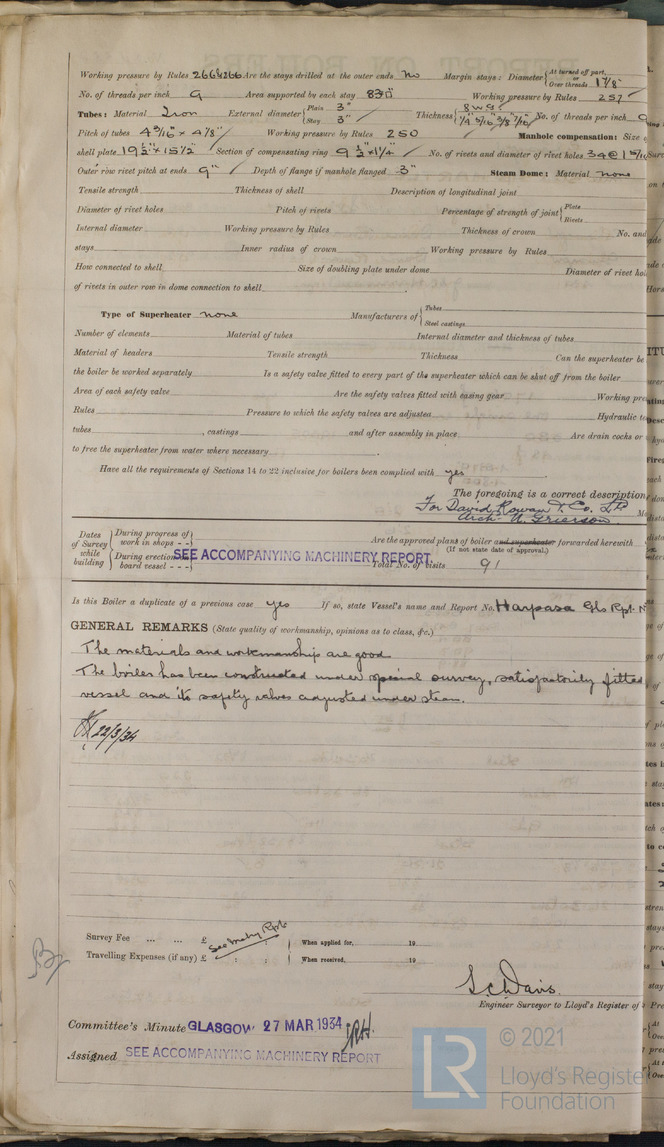 Working pressure by Rules 266 & 266 Are the stays drilled at the outer ends No Margin stays: Diameter { At turned off part, or Over threads 1 7/8"
No. of threads per inch 9 Area supported by each stay 83□" Working pressure by Rules 257
Tubes: Material Iron External diameter { Plain 3" Stay 3" Thickness { 8 WG 1/4" 5/16" 3/8" 7/16" No. of threads per inch 9
Pitch of tubes 4 3/16" × 4 1/8" Working pressure by Rules 250 Manhole compensation: Size o
shell plate 19 1/2" × 15 1/2" Section of compensating ring 9 1/2" × 1 1/4" No. of rivets and diameter of rivet holes 34 @ 1 5/16
Outer row rivet pitch at ends 9" Depth of flange if manhole flanged 3" Steam Dome: Material none
Tensile strength Thickness of shell Description of longitudinal joint
Diameter of rivet holes Pitch of rivets Percentage of strength of joint { Plate Rivets
Internal diameter Working pressure by Rules Thickness of crown No. and
stays Inner radius of crown Working pressure by Rules
How connected to shell Size of doubling plate under dome Diameter of rivet hol
of rivets in outer row in dome connection to shell
Type of Superheater none Manufacturers of { Tubes Steel castings
Number of elements Material of tubes Internal diameter and thickness of tubes
Material of headers Tensile strength Thickness Can the superheater be
the boiler be worked separately Is a safety valve fitted to every part of the superheater which can be shut off from the boiler
Area of each safety valve Are the safety valves fitted with easing gear Working pre
Rules Pressure to which the safety valves are adjusted Hydraulic te
tubes , castings and after assembly in place Are drain cocks or
to free the superheater from water where necessary
Have all the requirements of Sections 14 to 22 inclusive for boilers been complied with yes
The foregoing is a correct description
For David Rowan & Co. Ltd
Arch. W. Grierson
Dates of Survey while building { During progress of work in shops - - } Are the approved plans of boiler and superheater forwarded herewith
(If not state date of approval.)
{ During erection on board vessel - - - } SEE ACCOMPANYING MACHINERY REPORT. Total No. of visits 91
Is this Boiler a duplicate of a previous case yes If so, state Vessel's name and Report No. Harpasa Gls Rpt. N
GENERAL REMARKS (State quality of workmanship, opinions as to class, &c.)
The materials and workmanship are good
The boiler has been constructed under special survey, satisfactorily fitted
vessel and its safety valves adjusted under steam.
22/3/34
Survey Fee ... ... £ See Mchy Rpt. When applied for, 19
Travelling Expenses (if any) £ : : When received, 19
S C Davis.
Engineer Surveyor to Lloyd's Register of
Committee's Minute GLASGOW 27 MAR 1934
Assigned SEE ACCOMPANYING MACHINERY REPORT
LR © 2021
Lloyd's Register
Foundation